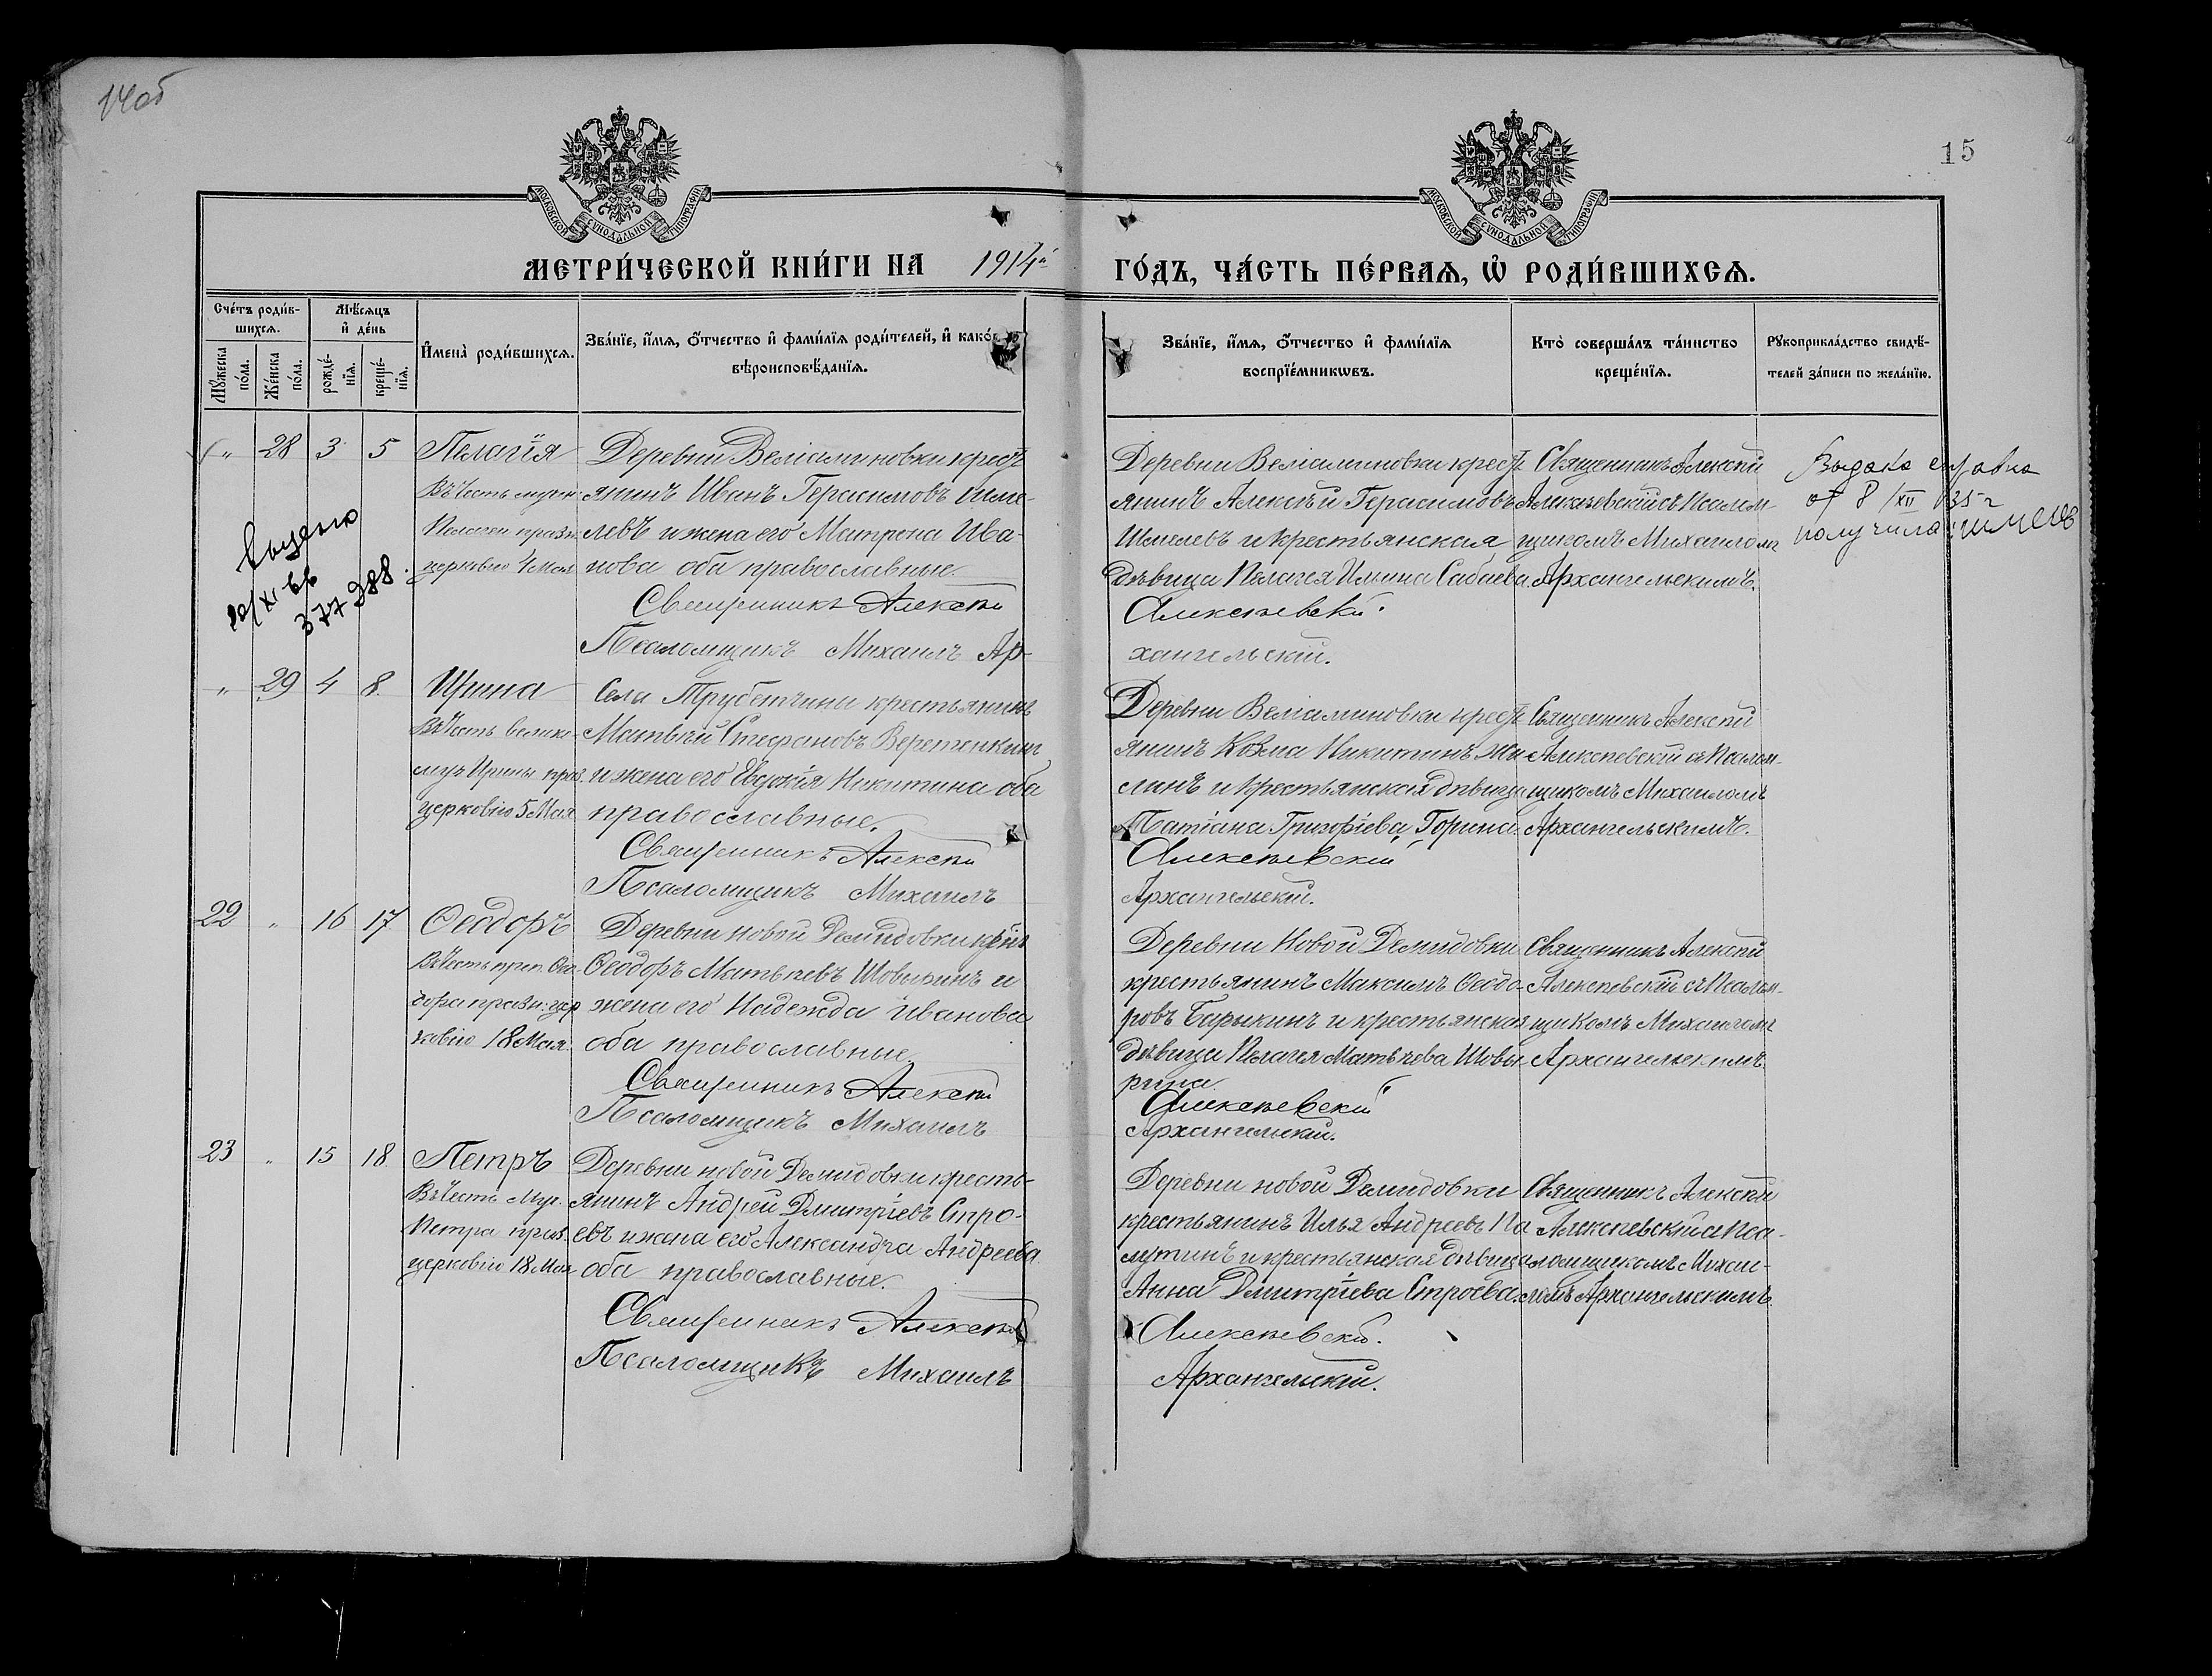 14об
15
МОСКОВСКОЙ СѴНОДАЛЬНОЙ ТИПОГРАФІИ
МОСКОВСКОЙ СѴНОДАЛЬНОЙ ТИПОГРАФІИ
МЕТРИ́ЧЕСКОЙ КНИ́ГИ НА 1914й
ГО́ДЪ, ЧА́СТЬ ПЕ́РВАѦ, Ѡ҆ РОДИ́ВШИХСѦ.
Сче́тъ роди́в-
шихсѧ.
Мѣ́сѧцъ
и҆ де́нь
Мꙋ́жеска
по́ла.
Же́нска
по́ла.
рожде́-
нїѧ.
креще́-
нїѧ.
И҆мена̀ роди́вшихсѧ.
Зва́нїе, и҆́мѧ, ѻ҆́тчество и҆ фами́лїѧ роди́телей, и҆ како́гѡ
вѣроисповѣ́данїѧ.
Зва́нїе, и҆́мѧ, ѻ҆́тчество и҆ фами́лїѧ
воспрїе́мникѡвъ.
Кто̀ соверша́лъ та́инство
креще́нїѧ.
Рꙋкоприкла́дство свидѣ́-
телей за́писи по жела́нїю.
" 28 3 5 Пелагія
Въ честь мучен.
Пелагеи празн.
церковію 4 Мая
Деревни Веліаминовки крест
янинъ Иванъ Герасимовъ Шме-
левъ и жена его Матрона Ива-
нова оба православные.
Священникъ Алексѣй
Псаломщикъ Михаилъ Ар-
Деревни Веліаминовки крест
янинъ Алексѣй Герасимовъ
Шмелевъ и крестьянская
дѣвица Пелагея Ильина Сабаева.
Алексѣевскій.
хангельскій.
Священникъ Алексѣй
Алексѣевскій съ Псалом-
щикомъ Михаиломъ
Архангельскимъ.
Выдана справка
от 8/XII 35 г
получила
377288.
" 29 4 8 Ирина
Въ честь велико-
муч Ирины праз.
церковію 5 Мая
Села Трубетчины крестьянинъ
Матвѣй Стефановъ Веретенкинъ
и жена его Евдокія Никитина оба
православные.
Священникъ Алексѣй
Псаломщикъ Михаилъ
Деревни Веліаминовки крест
янинъ Козма Никитинъ Жи
линъ и крестьянская дѣвица
Татіана Григоріева Горина.
Алексѣевскій
Архангельскій.
Священникъ Алексѣй
Алексѣевскій съ Псалом-
щикомъ Михаиломъ
Архангельскимъ.
22 " 16 17 Ѳеодоръ
Въ честь преп. Ѳео-
дора празн. цер
ковію 18 Мая.
Деревни новой Демидовки
Ѳеодоръ Матвѣевъ Шовыринъ и
жена его Надежда Иванова
оба православные.
Священникъ Алексѣй
Псаломщикъ Михаилъ
Деревни Новой Демидовки
крестьянинъ Максимъ Ѳеодо-
ровъ Барыкинъ и крестьянская
дѣвица Пелагея Матвѣева Шовы-
рина.
Алексѣевскій
Архангельскій.
Священникъ Алексѣй
Алексѣевскій съ Псалом-
щикомъ Михаиломъ
Архангельскимъ.
23 " 15 18 Петръ
Въ честь Муч.
Петра празн.
церковію 18 Мая
Деревни новой Демидовки кресть-
янинъ Андрей Дмитріевъ Стро-
евъ и жена его Александра Андреева
оба православные.
Священникъ Алексѣй
Псаломщикъ Михаилъ
Деревни новой Демидовки
крестьянинъ Илья Андреевъ Па
лутинъ и крестьянская дѣвица
Анна Дмитріева Строева.
Алексѣевскій.
Архангельскій.
Священникъ Алексѣй
Алексѣевскій съ Пса-
ломщикомъ Михаи-
ломъ Архангельскимъ.